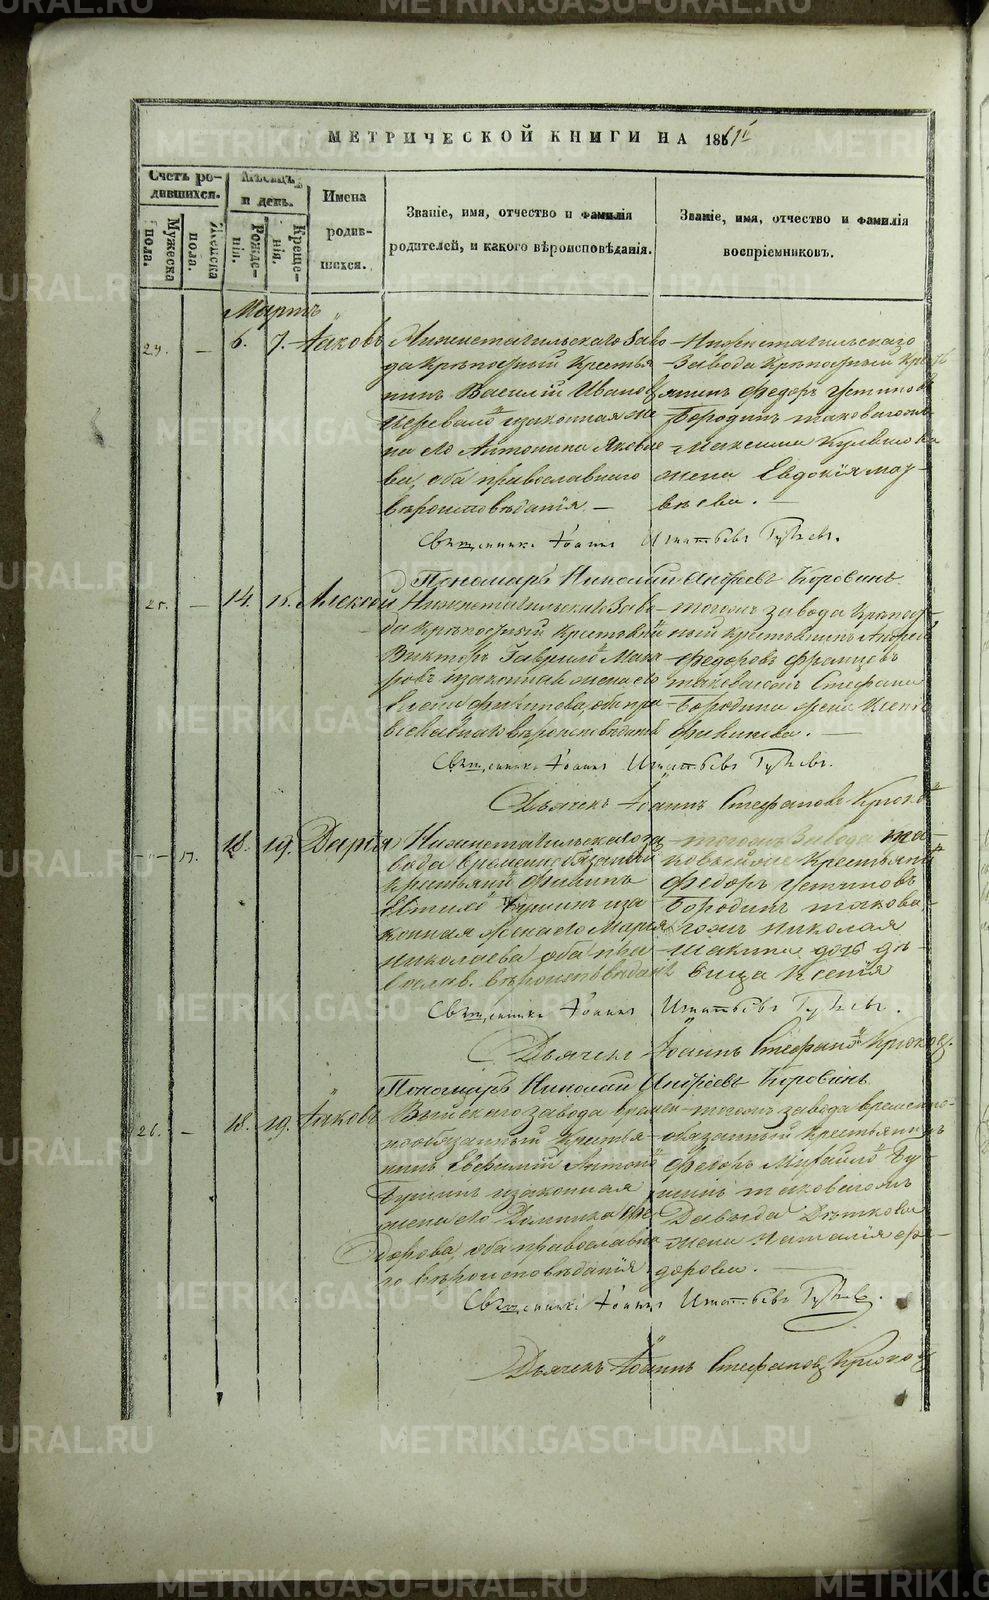 METRIKI.GASO-URAL.RU
МЕТРИЧЕСКОЙ КНИГИ НА 1861
Счетъ ро-
дившихся.
Мужеска
пола.
Женска
пола.
Мѣсяцъ
и день.
Рожде-
нія.
Креще-
нія.
Имена
родив-
шихся.
Званіе, имя, отчество и фамилія
родителей, и какого вѣроисповѣданія.
Званіе, имя, отчество и фамилія
воспріемниковъ.
Мартъ
24. — 6. 7. Іаковъ
Нижнетагильскаго Заво
да Крѣпостный Крестья
нинъ Василій Ивановъ
законная же
на его Антонина Яковле
ва, оба православнаго
вѣроисповѣданія —
Нижнетагильскаго
Завода Крѣпостный Крестья
янинъ Федоръ Устиновъ
Бородинъ таковагожъ
Максима
жена Евдокія Мат-
вѣева. —
Священникъ Іоаннъ Игнатьевъ
Пономарь Николай Андреевъ Коровинъ
25. — 14. 15. Алексей
Нижнетагильскаго Заво
да Крѣпостный Крестьянинъ
Викторъ Гаврилов Мака
ровъ и законная жена его
Елена Филипова, оба пра
вославнаго вѣроисповѣданія
тогожъ завода Крѣпост
ный Крестьянинъ Андрей
Федоровъ
таковагожъ Стефана
Бородина жена Ксенія
—
Священникъ Іоаннъ Игнатьевъ
Дьячекъ Іоаннъ Стефановъ Крюковъ
— 17. 18. 19. Дарія
Нижнетагильскаго за
вода временнообязанный
крестьянинъ Филипъ
иза
конная жена его Марія
Николаева оба пра
вослав. вѣроисповѣданія
тогожъ Завода та
ковый же Крестьянинъ
Федоръ Устиновъ
Бородинъ такова
гожъ Николая
дочь дѣ-
вица Ксенія
Священникъ Іоаннъ Игнатьевъ
Дьячекъ Іоаннъ Стефановъ Крюковъ.
Пономарь Николай Андреевъ Коровинъ
26. — 18. 19. Іаковъ
Выйскаго завода времен
нообязанный Крестья
нинъ Евфимій Антонов
и законная
жена его Домника Фе
дорова, оба православна
го вѣроисповѣданія
тогожъ завода временно-
обязанный Крестьянинъ
Федоръ Михайлов
таковагожъ
Давыда
жена Наталія Фе-
дорова. —
Священникъ Іоаннъ Игнатьевъ
Дьячекъ Іоаннъ Стефановъ Крюковъ